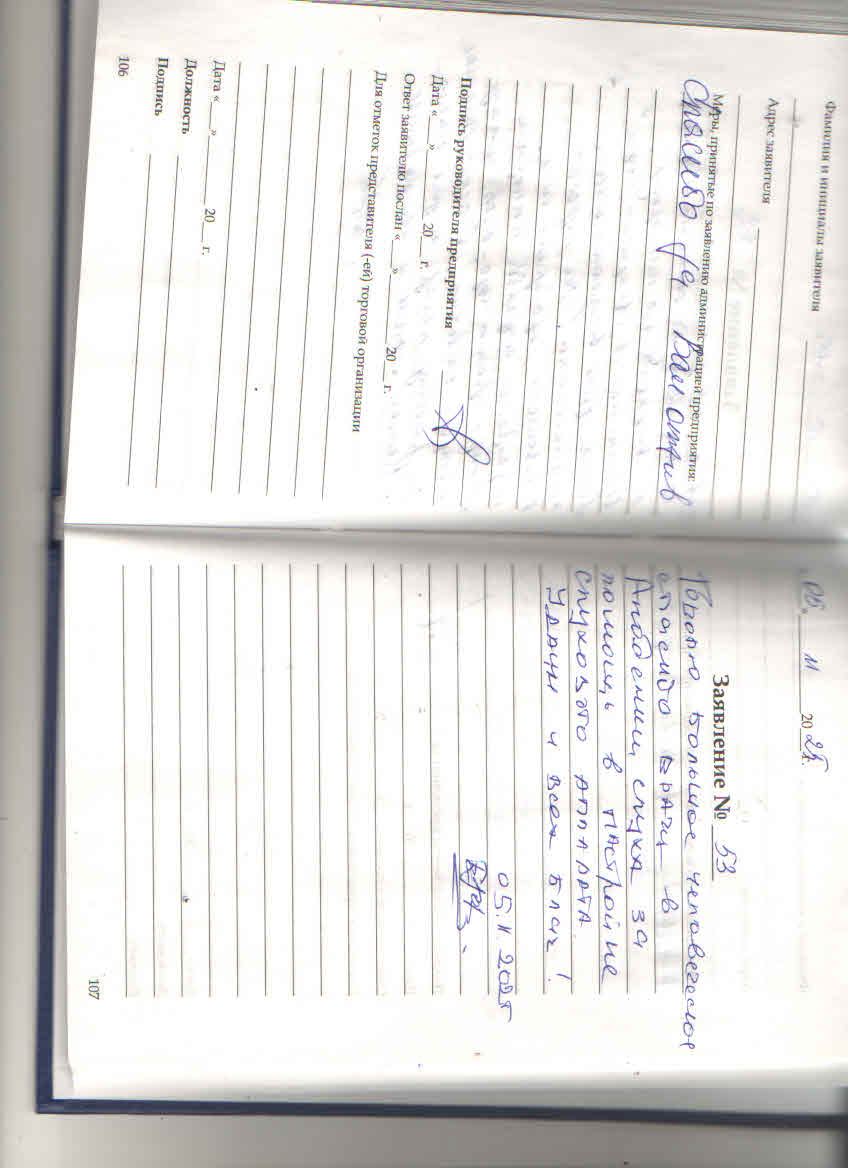 Фамилия и инициалы заявителя
Адрес заявителя
Меры, принятые по заявлению администрацией предприятия:
Спасибо за Ваш отзыв
Подпись руководителя предприятия
Дата «___» ______ 20__ г.
Ответ заявителю послан «___» ______ 20__ г.
Для отметок представителя (-ей) торговой организации
Дата «___» ______ 20__ г.
Должность
Подпись
106
05 " 11 2025 г.
Заявление № 53
Говорю большое человеческое
спасибо врачу в
Академии слуха за
помощь в настройке
слухового аппарата.
Удачи и всех благ!
05.11.2025
107